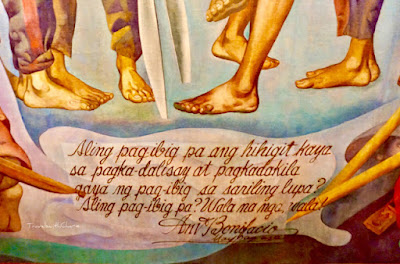 Aling pag-ibig pa ang hihigit kaya
sa pagka-dalisay at pagkadakila
gaya ng pag-ibig sa sariling lupa?
Aling pag-ibig pa? Wala na nga, wala!
And. Bonifacio